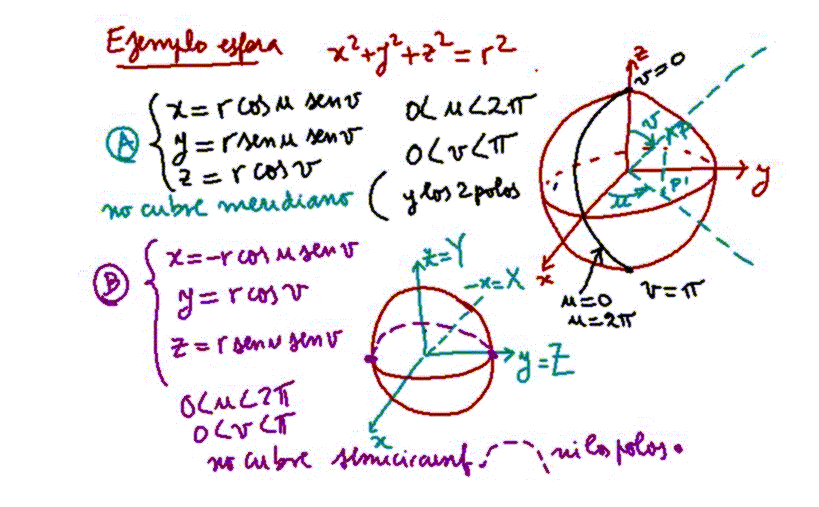 Ejemplo esfera x²+y²+z²=r²
A
x=r cos u sen v 0<u<2π
y=r sen u sen v 0<v<π
z=r cos v
no cubre meridiano ( y los 2 polos
B
x=-r cos u sen v
y=r cos v
z=r sen u sen v
0<u<2π
0<v<π
no cubre semicircunf. ni los polos.
z
v=0
v
P
y
u
P'
x
u=0
u=2π
v=π
z=Y
-x=X
y=Z
x